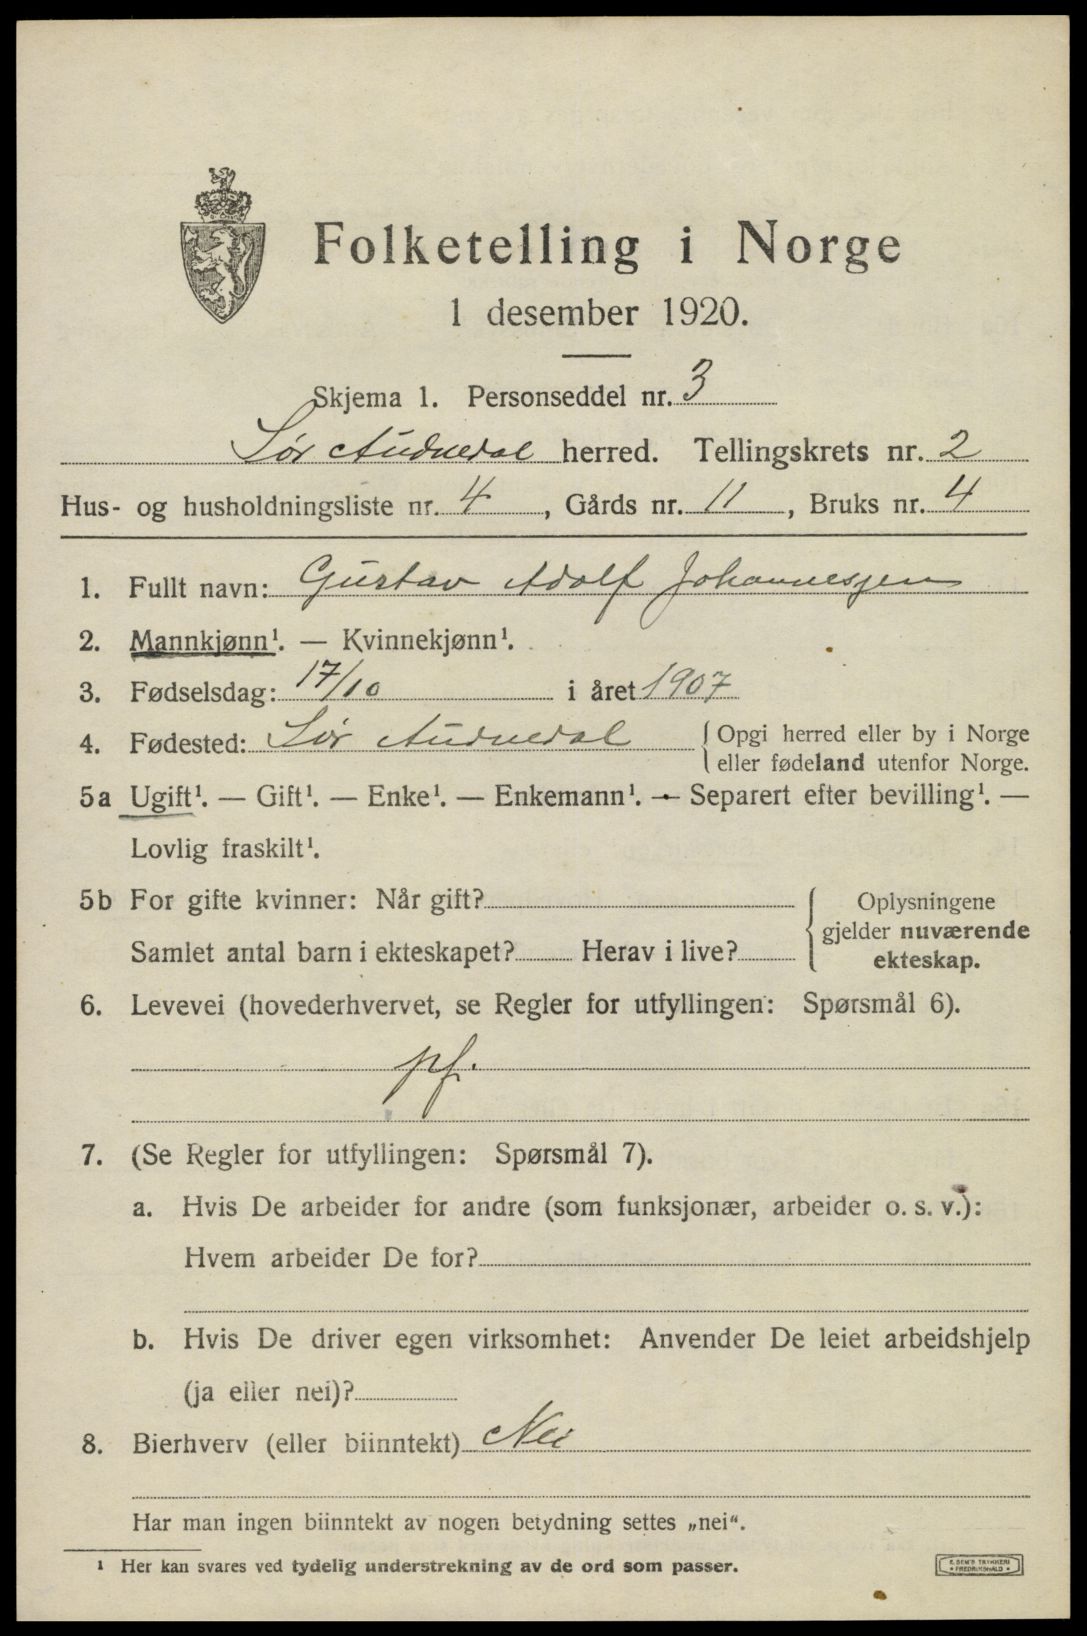 Folketelling i Norge
1 desember 1920.
Skjema 1. Personseddel nr. 3
Sør Audnedal herred. Tellingskrets nr. 2
Hus- og husholdningsliste nr. 4, Gårds nr. 11, Bruks nr. 4
1. Fullt navn: Gustav Adolf Johannesen
2. Mannkjønn¹. — Kvinnekjønn¹.
3. Fødselsdag: 17/10 i året 1907
4. Fødested: Sør Audnedal { Opgi herred eller by i Norge
eller fødeland utenfor Norge.
5a Ugift¹. — Gift¹. — Enke¹. — Enkemann¹. — Separert efter bevilling¹. —
Lovlig fraskilt¹.
5b For gifte kvinner: Når gift?
Samlet antal barn i ekteskapet? Herav i live?
{ Oplysningene
gjelder nuværende
ekteskap.
6. Levevei (hovederhvervet, se Regler for utfyllingen: Spørsmål 6).
pf.
7. (Se Regler for utfyllingen: Spørsmål 7).
a. Hvis De arbeider for andre (som funksjonær, arbeider o. s. v.):
Hvem arbeider De for?
b. Hvis De driver egen virksomhet: Anvender De leiet arbeidshjelp
(ja eller nei)?
8. Bierhverv (eller biinntekt) Nei
Har man ingen biinntekt av nogen betydning settes „nei“.
¹ Her kan svares ved tydelig understrekning av de ord som passer.
E. SEM'S TRYKKERI
• FREDRIKSHALD •